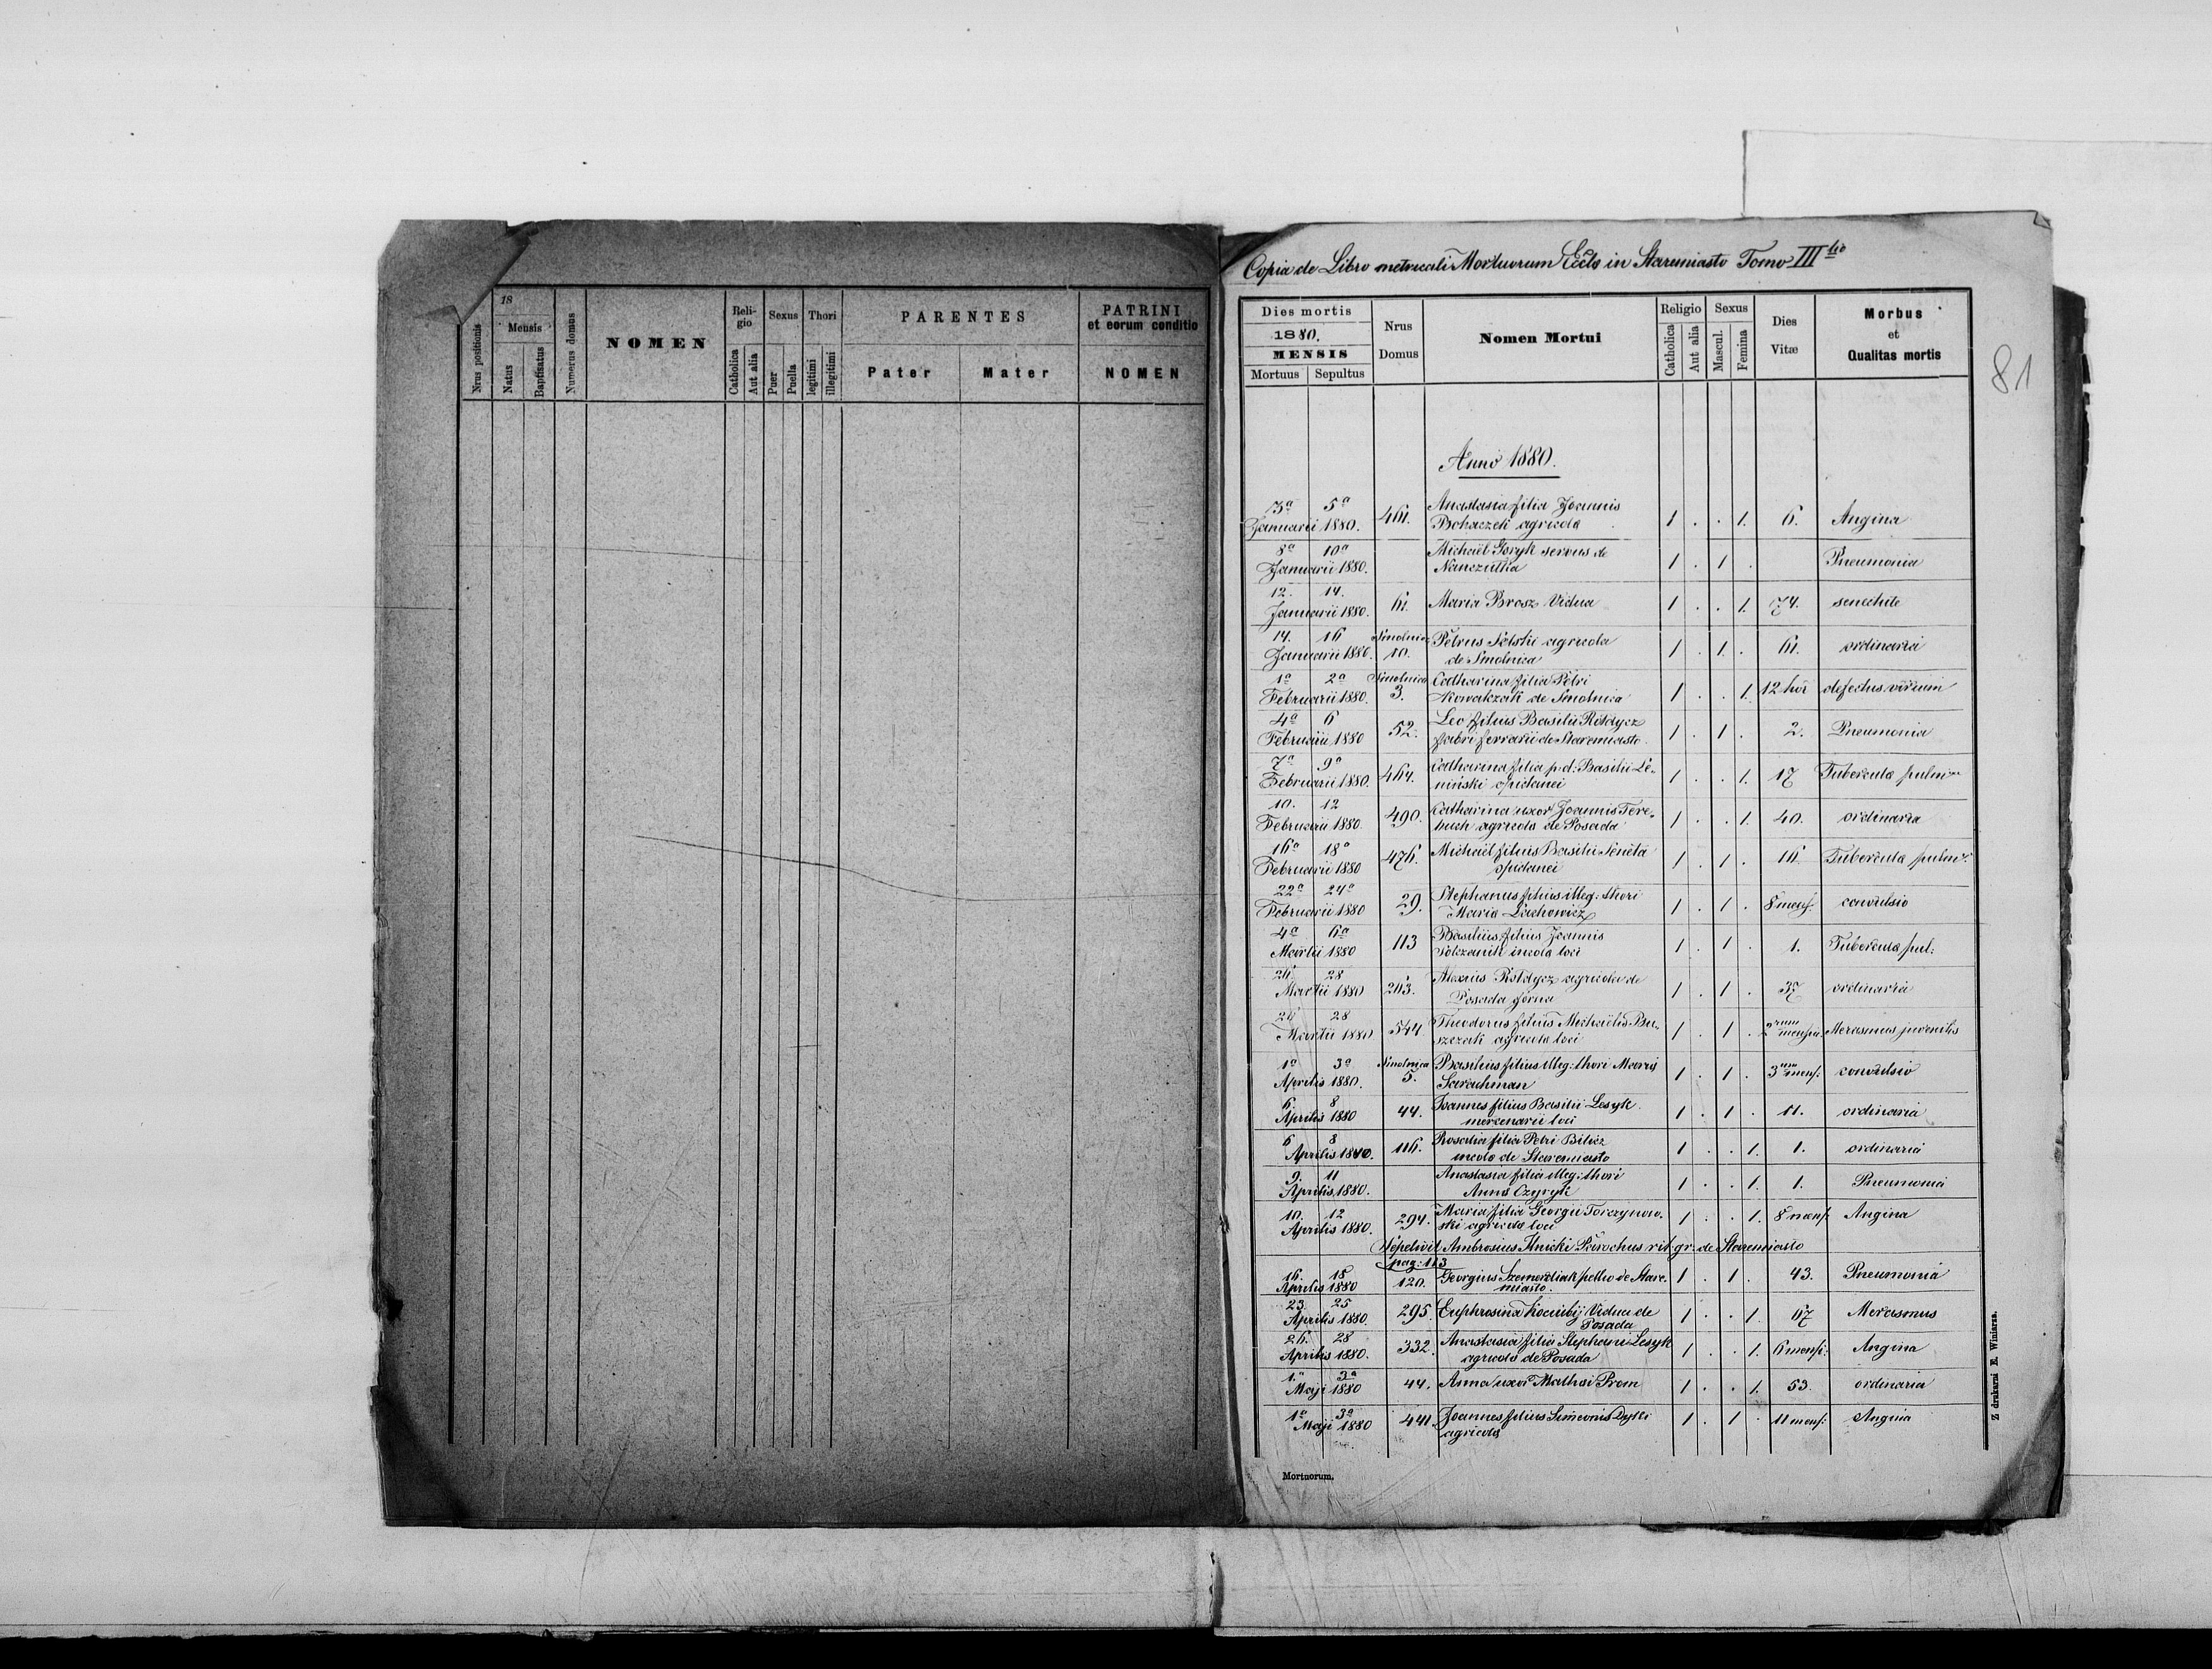 18
Mensis
Nrus positionis
Natus
Baptisatus
Numerus domus
NOMEN
Reli-
gio
Catholica
Aut alia
Sexus
Puer
Puella
Thori
legitimi
illegitimi
PARENTES
Pater
Mater
PATRINI
et eorum conditio
NOMEN
Copia de Libro metricali Mortuorum Eccls in Staremiasto Tomo III tio
81
Dies mortis
1880.
MENSIS
Mortuus Sepultus
Nrus
Domus
Nomen Mortui
Religio
Catholica
Aut alia
Sexus
Mascul.
Femina
Dies
Vitæ
Morbus
et
Qualitas mortis
Anno 1880.
3a 5a Anastasia filia Joannis
Januarii 1880. 461. agricola 1 . . 1. 6. Angina
8a 10a Michaël Goryk servus de
Januarii 1880. 1 . 1 . Pneumonia
12. 14.
Januarii 1880. 61. Maria Brosz Vidua 1 . . 1. 74. senectute
14. 16 Smolnica Petrus Solski agricola
Januarii 1880. 10. de Smolnica 1 . 1. . 61. ordinaria
1a 2a Smolnica Catharina filia Petri
Februarii 1880. 3. Nowakzak de Smolnica 1 . . 1. 12 hor defectus virium
4a 6 Leo filius Basilii Rotdycz
Februarii 1880 52. fabri ferrarii de Staremiasto. 1 . 1 . 2. Pneumonia
7a 9a Catharina filia p.d. Basilii Le-
Februarii 1880. 464. niński opidanei 1 . . 1. 17 Tubercula pulm
10. 12 Catharina uxor Joannis Tere-
Februarii 1880. 490. buch agricola de Posada 1 . . 1. 40. ordinaria
16a 18a Michaël filius Basilii Seneta
Februarii 1880 476. opidanei 1 . 1 . 16. Tubercula pulm.
22a 24a Stephanus filius illeg: thori
Februarii 1880 29. Maria Lachowicz 1 . 1 . 8 mens. convulsio
4a 6a Basilius filius Joannis
Martii 1880 113 incola loci 1 . 1 . 1. Tubercula pul:
26. 28 Alexius Rotdycz agricola de
Martii 1880 203. Posada górna 1 . 1 . 37 ordinaria
28 Theodorus filius Michaëlis Bu-
Martii 1880 544 szczak agricola loci 1 . 1 . 2 rum mensium Merasmus juvenilis
1a 3a Smolnica Basilius filius illeg: thori Maria
Aprilis 1880. 5. Sarachman 1 . 1 . 3 um mens: convulsio
6. 8 Joannes filius Basilii Lesyk
Aprilis 1880 44. mercenarii loci 1 . 1 . 11. ordinaria
6 8 Rosalia filia Petri Bilicz
Aprilis 1880. 116. incola de Staremiasto 1 . . 1. 1. ordinaria
9. 11 Anastasia filia illeg: thori
Aprilis 1880. Anna Czyryk 1 . . 1. 1. Pneumonia
10. 12 Maria filia Georgii Torczynow-
Aprilis 1880. 294. ski agricola loci 1 . . 1. 8 mens: Angina
Sepelivit Ambrosius Ilnicki Parochus rit gr. de Staremiasto
pag: 113
16. 18 Georgius Szemerdiak pellio de Stare-
Aprilis 1880 120. miasto. 1 . 1 . 43. Pneumonia
23. 25 Euphrosina Kociuby Vidua de
Aprilis 1880. 295. Posada 1 . . 1. 67 Merasmus
26. 28 Anastasia filia Stephani Lesyk
Aprilis 1880. 332. agricola de Posada 1 . . 1. 6 mens: Angina
1a 3a
Maji 1880 44. Anna uxor Mathei Prom 1 . . 1. 53. ordinaria
1a 3a Joannes filius Simeonis
Maji 1880 441. agricola 1 . 1 . 11 mens: Angina
Mortuorum.
Z drukarni E. Winiarza.